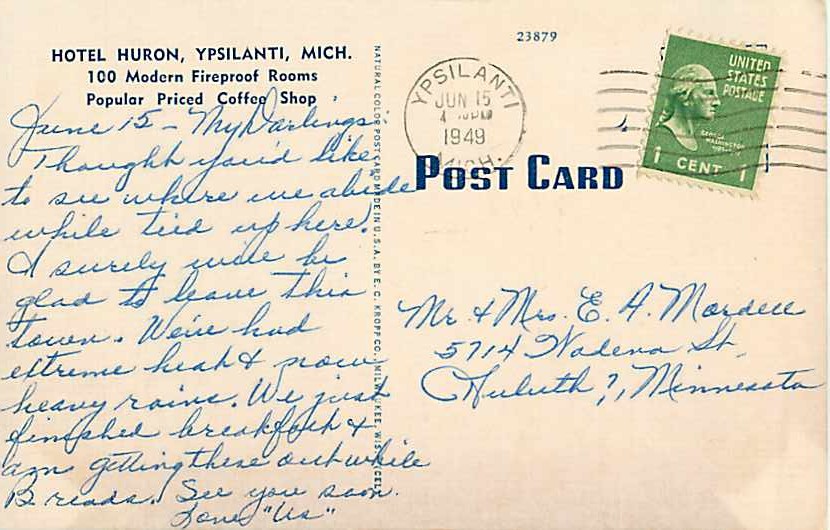 HOTEL HURON, YPSILANTI, MICH.
100 Modern Fireproof Rooms
Popular Priced Coffee Shop
June 15 - My Darlings
Thought you'd like
to see where we abide
while tied up here.
I surely will be
glad to leave this
town. We've had
extreme heat & now
heavy rains. We just
finished breakfast &
am getting these out while
B reads. See you soon.
Love "Us"
NATURAL COLOR POST CARD MADE IN U.S.A. BY E. C. KROPP CO., MILWAUKEE, WIS.
23879
YPSILANTI
JUN 15
1949
MICH.
UNITED
STATES
POSTAGE
GEORGE
WASHINGTON
1 CENT 1
POST CARD
Mr. & Mrs. E. A. Mardell
5714 Wadena St.
Duluth 7, Minnesota